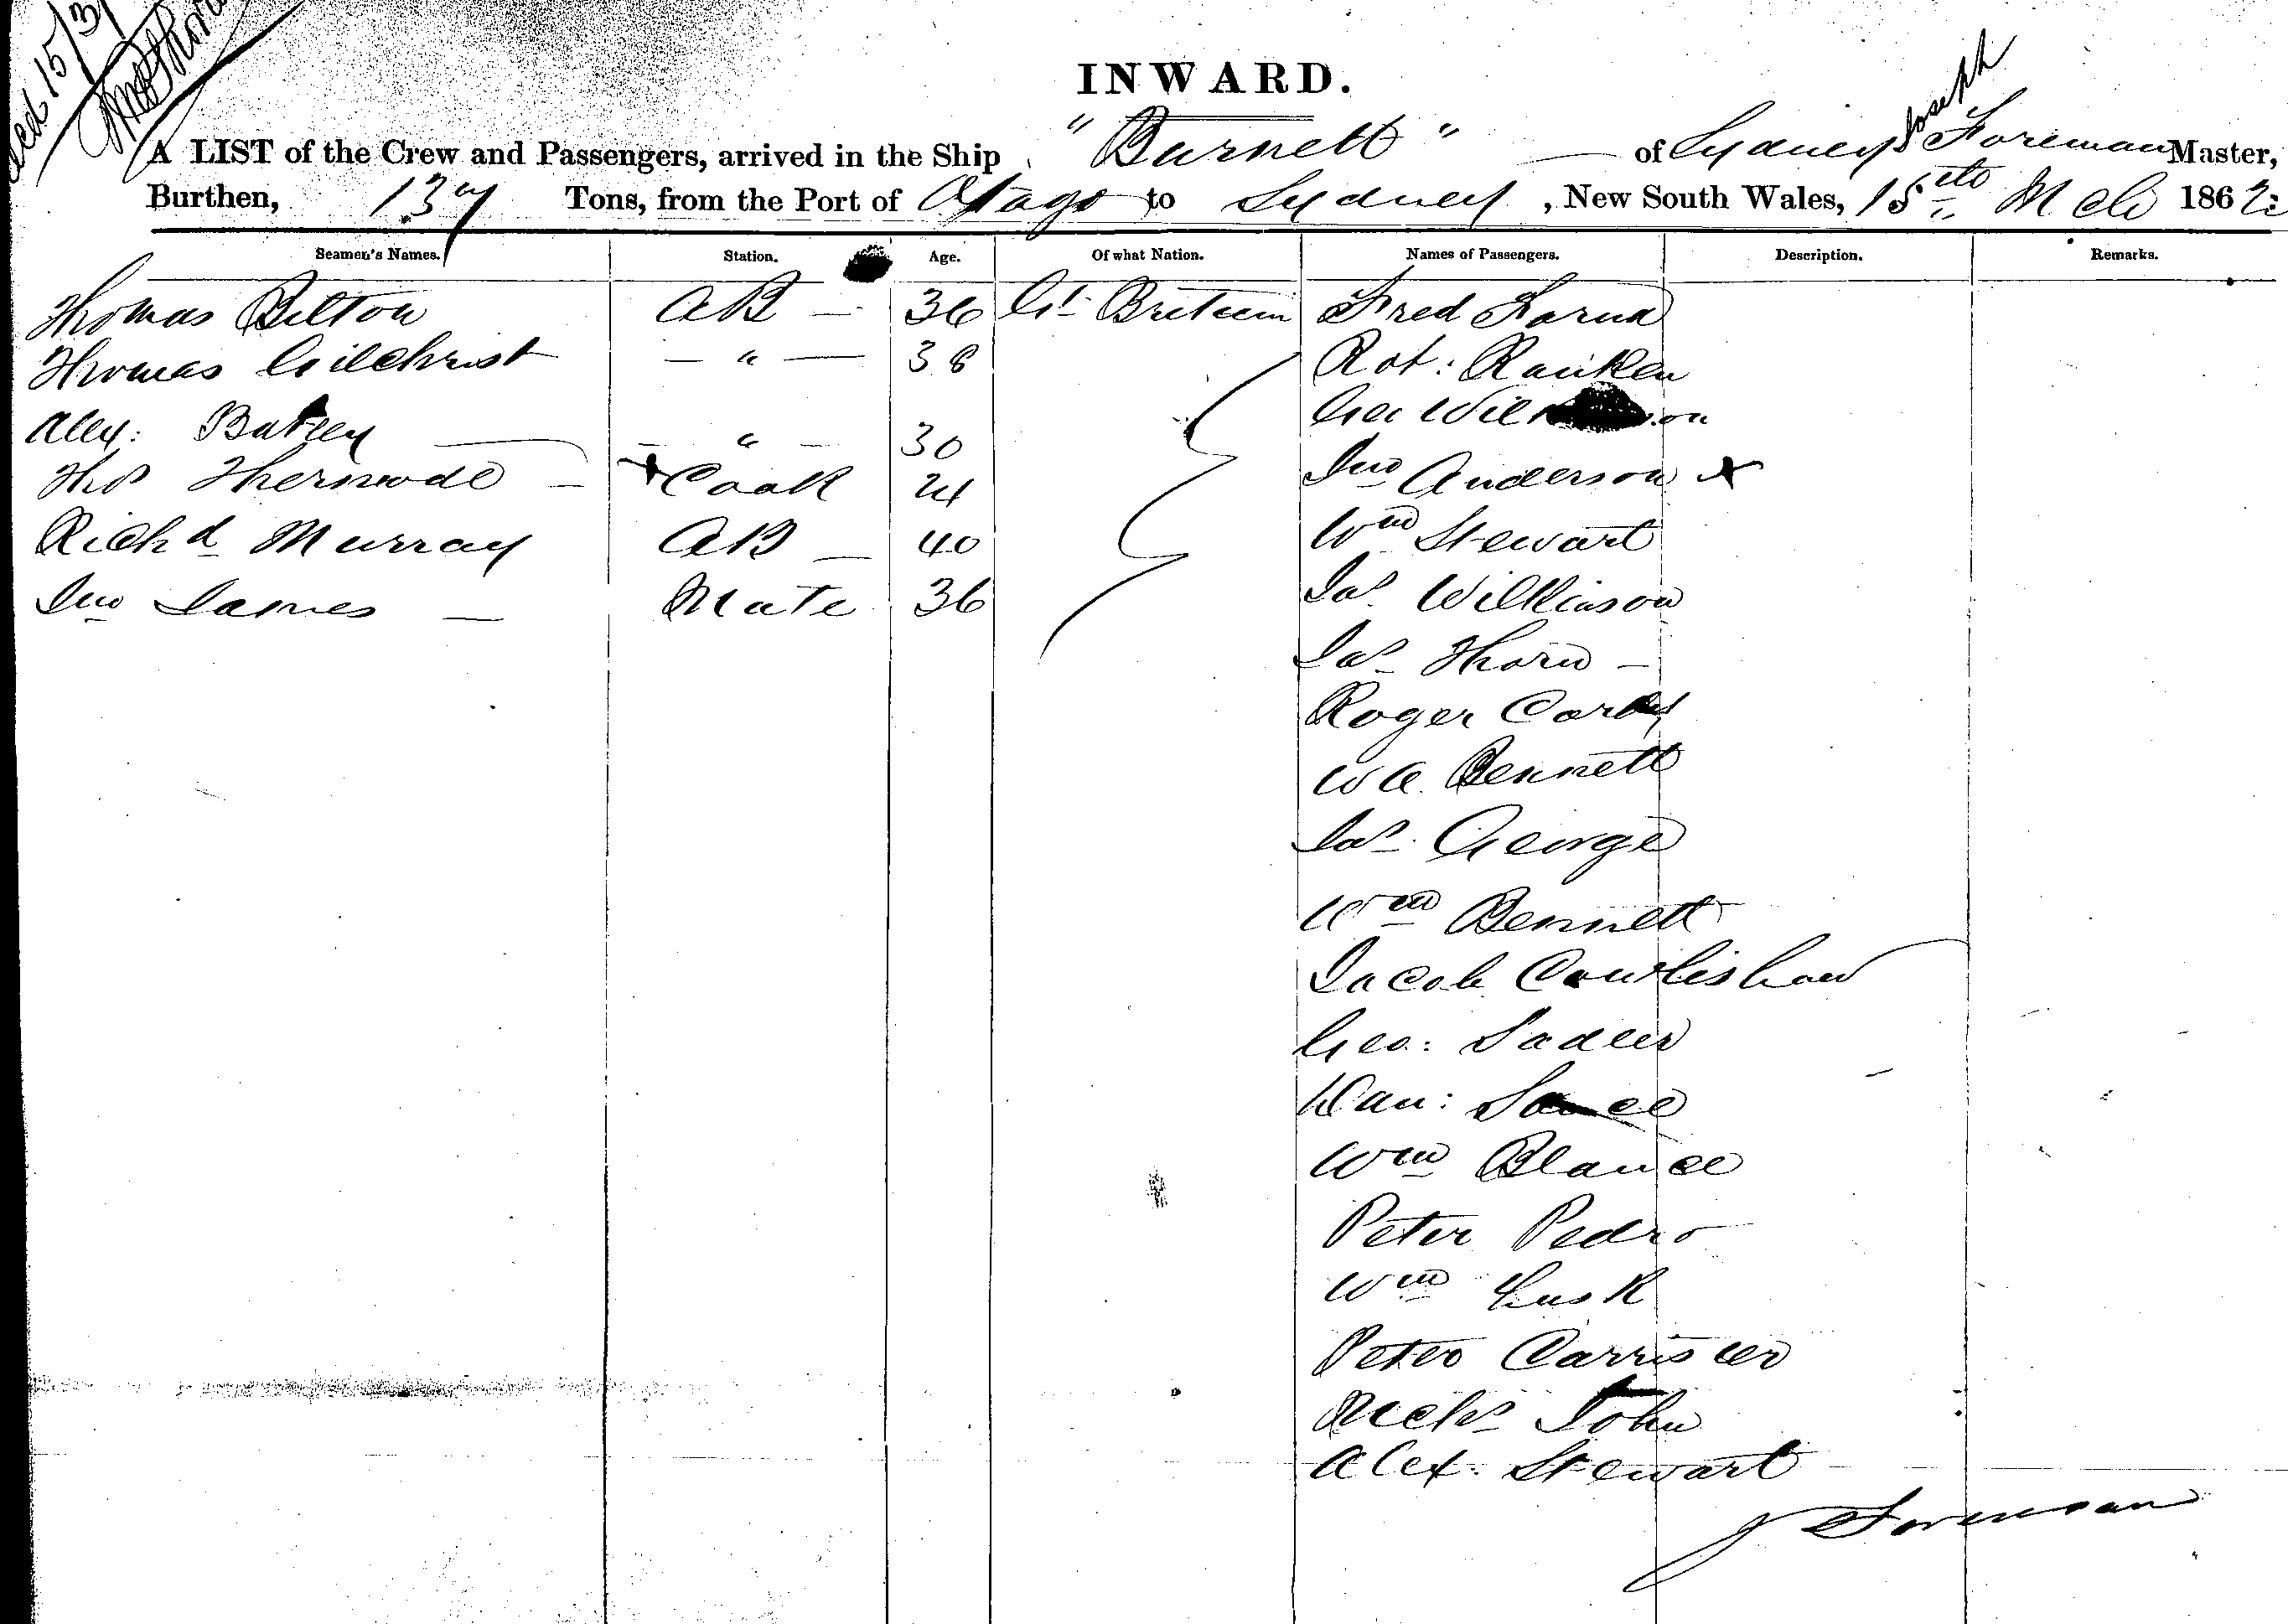 15/3
INWARD.
A LIST of the Crew and Passengers, arrived in the Ship "Burnett" of Sydney Joseph Foreman Master,
Burthen, 137 Tons, from the Port of Otago to Sydney, New South Wales, 15th Mch 1862
Seamen's Names. Station. Age. Of what Nation. Names of Passengers. Description. Remarks.
Thomas Bilton AB 36 Gt Britain Fred
Thomas Gilchrist " 38 Rot: Ranken
Alex: " 30
Thos Cook 24 Jno Anderson x
Richd Murray AB 40 Wm Stewart
Jno James Mate 36 Jas Wilkinson
Jas Thorn
Roger
W A. Bennett
Jas George
Wm Bennett
Jacob Cowlishaw
Geo: Sadler
Dan:
Wm Blance
Peter Pedro
Wm Lusk
Peter
Nichs John
Alex. Stewart
J Foreman